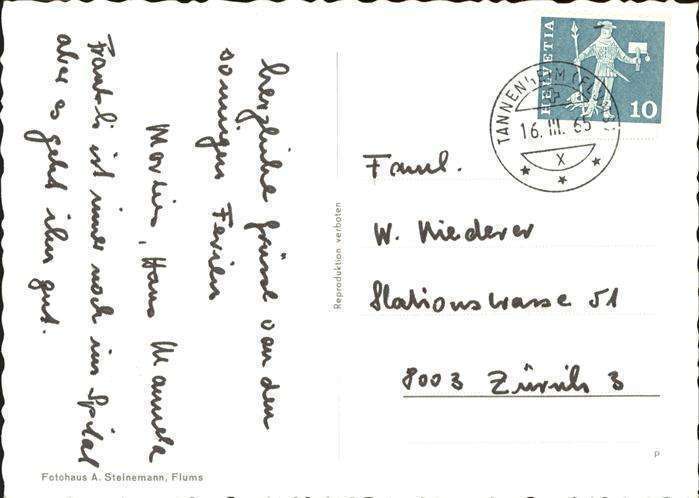 herzliche Grüsse von den
sonnigen Ferien
Martin, Hans Manuela
ist immer noch im Spital
aber es geht ihm gut.
Fotohaus A. Steinemann, Flums
Reproduktion verboten
HELVETIA
10
TANNENHEIM (FL
16. III. 65
X
Faml.
W. Niederer
Stationsstrasse 51
8003 Zürich 3
P